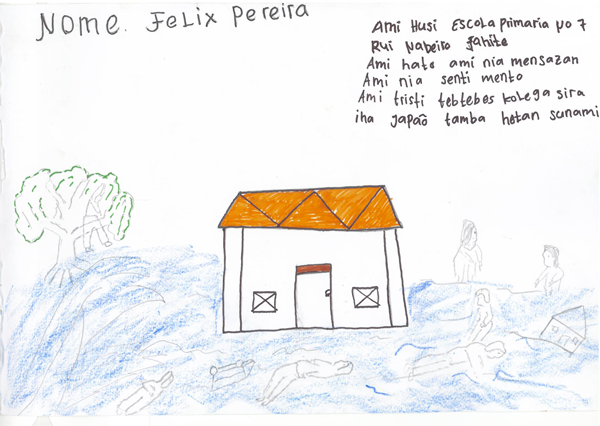 Nome. Felix Pereira
Ami Husi Escola primaria no 7
Rui Nabeiro Fahite
Ami hato ami nia mensazan
Ami nia senti mento
Ami tristi tebtebes kolega sira
iha Japaõ tamba hetan sunami